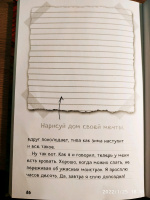 Нарисуй дом своей мечты
вдруг похолодает, типа как зима наступит
и всё такое.
Ну так вот. Как я и говорил, теперь у меня
есть кровать. Хорошо, когда можно спать, не
переживая об ужасных монстрах. Я просплю
часов десять. Да, завтра я сплю допоздна!
86